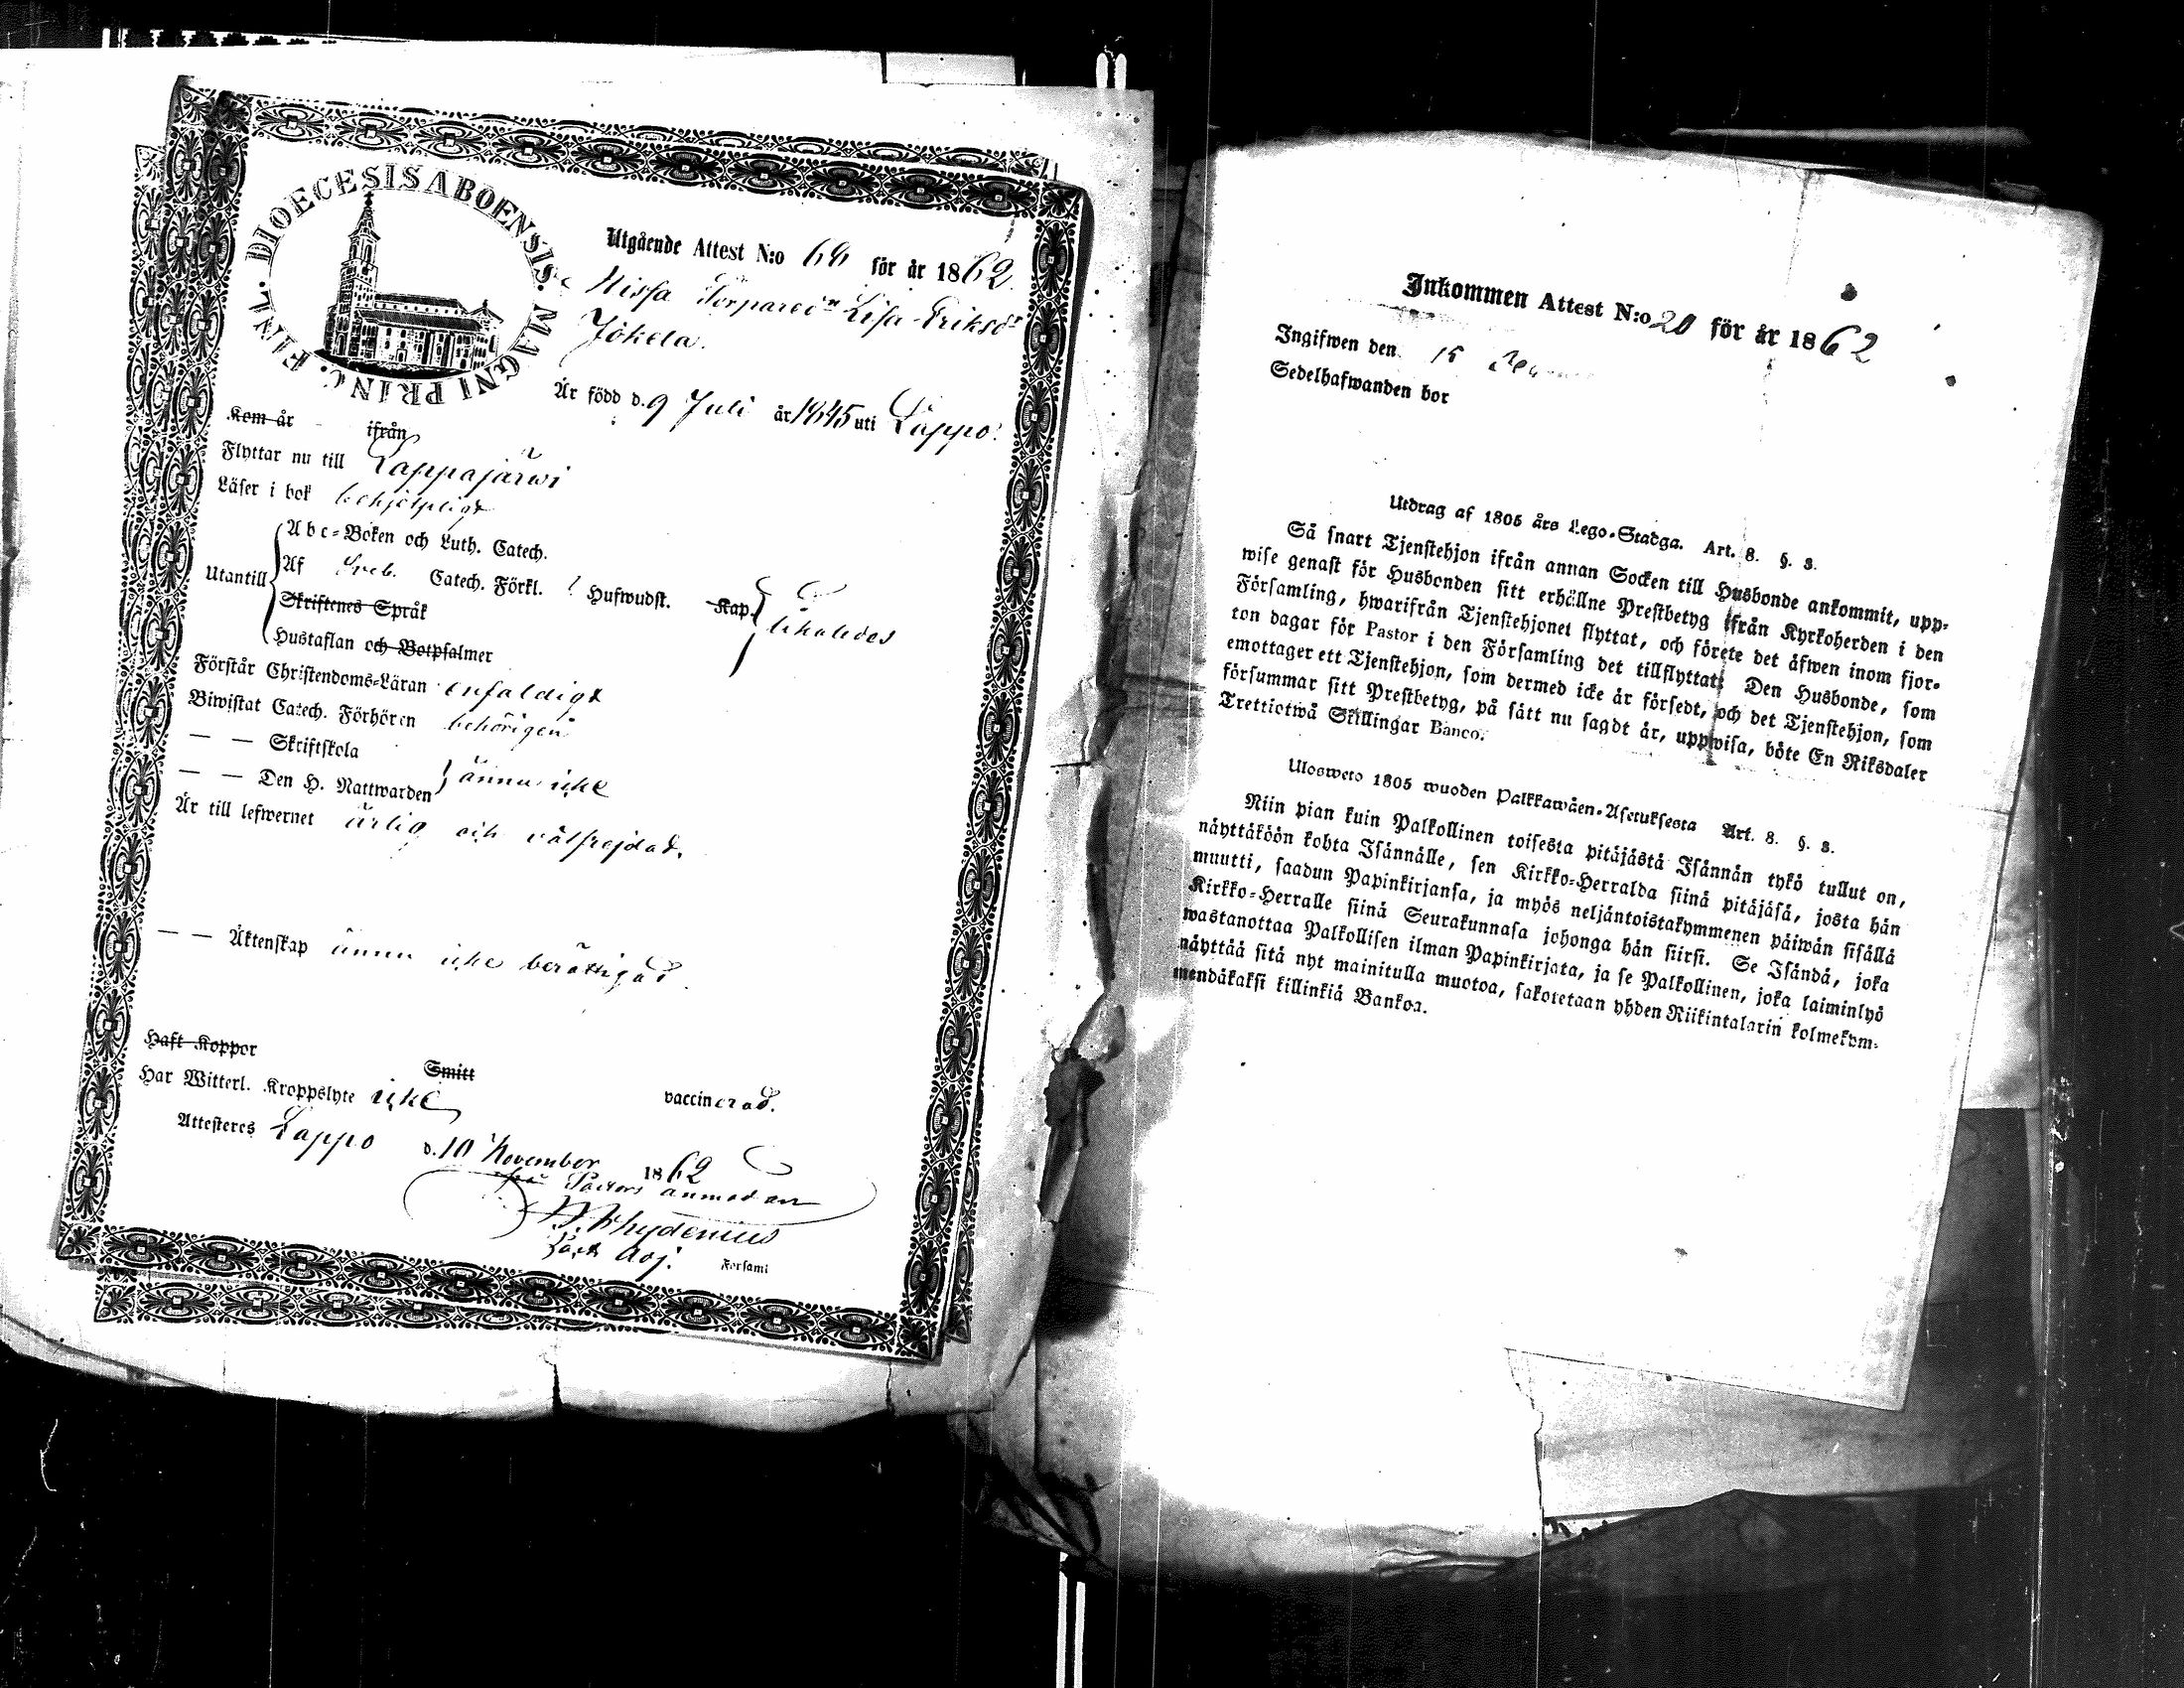 DIOECESIS ABOENSIS. MAGNI PRINC. FINL.
Utgående Attest N:o 68 för år 1862.
Torpared:n Lisa Eriksd:r
Jokela.
Är född d. 9 Juli år 1845 uti Lappo.
Kom år ifrån
Flyttar nu till Lappajärwi
Läser i bok behjelpligt
Utantill
Abc-Boken och Luth. Catech.
Af Sveb. Catech. Förkl. Hufwudst. Kap.
likaledes
Skriftenes Språk
Hustaflan och Botpsalmer
Förstår Christendoms-Läran enfaldigt
Biwistat Catech. Förhören behörigen
— — Skriftskola
— — Den H. Nattwarden ännu icke
Är till lefwernet ärlig och välfrejdad.
— — Äktenskap ännu icke berättigad.
Haft Koppor Smitt vaccinerad.
Har Witterl. Kroppslyte icke
Attesteres Lappo d. 10 November 1862
Pastors anmodan
Past. Adj. Forsaml
Inkommen Attest N:o 20 för år 1862
Ingifwen den 15
Sedelhafwanden bor
Utdrag af 1805 års Lego-Stadga. Art. 8. §. 3.
Så snart Tjenstehjon ifrån annan Socken till Husbonde ankommit, upp-
wise genast för Husbonden sitt erhållne Prestbetyg ifrån Kyrkoherden i den
Församling, hwarifrån Tjenstehjonet flyttat, och förete det äfwen inom fjor-
ton dagar för Pastor i den Församling det tillflyttat. Den Husbonde, som
emottager ett Tjenstehjon, som dermed icke är försedt, och det Tjenstehjon, som
försummar sitt Prestbetyg, på sätt nu sagdt är, uppwisa, böte En Riksdaler
Trettiotwå Skillingar Banco.
Ulosweto 1805 wuoden Palkkawäen-Asetuksesta Art. 8. §. 3.
Niin pian kuin Palkollinen toisesta pitäjästä Isännän tykö tullut on,
näyttäköön kohta Isännälle, sen Kirkko-Herralda siinä pitäjäsä, josta hän
muutti, saadun Papinkirjansa, ja myös neljäntoistakymmenen päiwän sisällä
Kirkko-Herralle siinä Seurakunnasa johonga hän siirsi. Se Isändä, joka
wastanottaa Palkollisen ilman Papinkirjata, ja se Palkollinen, joka laiminlyö
näyttää sitä nyt mainitulla muotoa, sakotetaan yhden Riikintalarin kolmekym-
mendäkaksi killinkiä Bankoa.